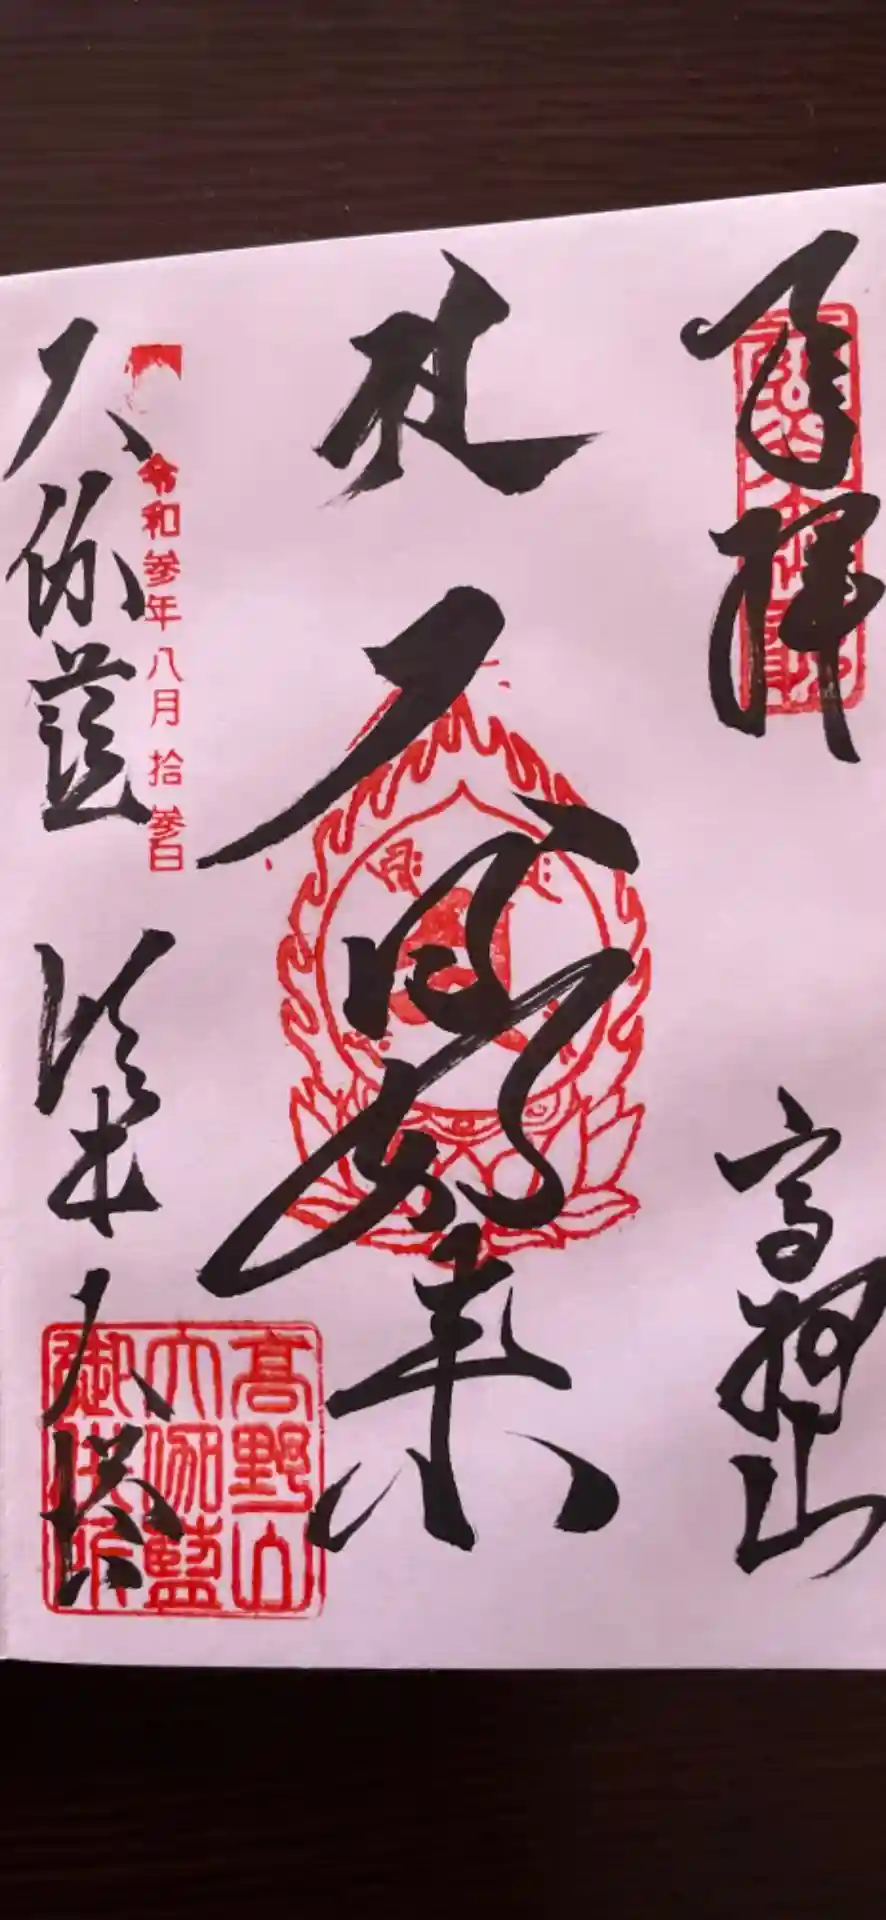 奉拝
高野山
大日如来
令和参年八月拾参日
大伽藍 根本大塔
髙野山
大伽藍
御供所